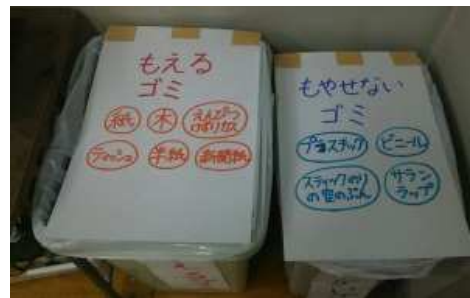 もえる
ゴミ
紙 木 えんぴつ
けずりカス
ティッシュ 手紙 新聞紙
もやせない
ゴミ
プラスチック ビニール
スティックのり
の空のぶん
サラン
ラップ